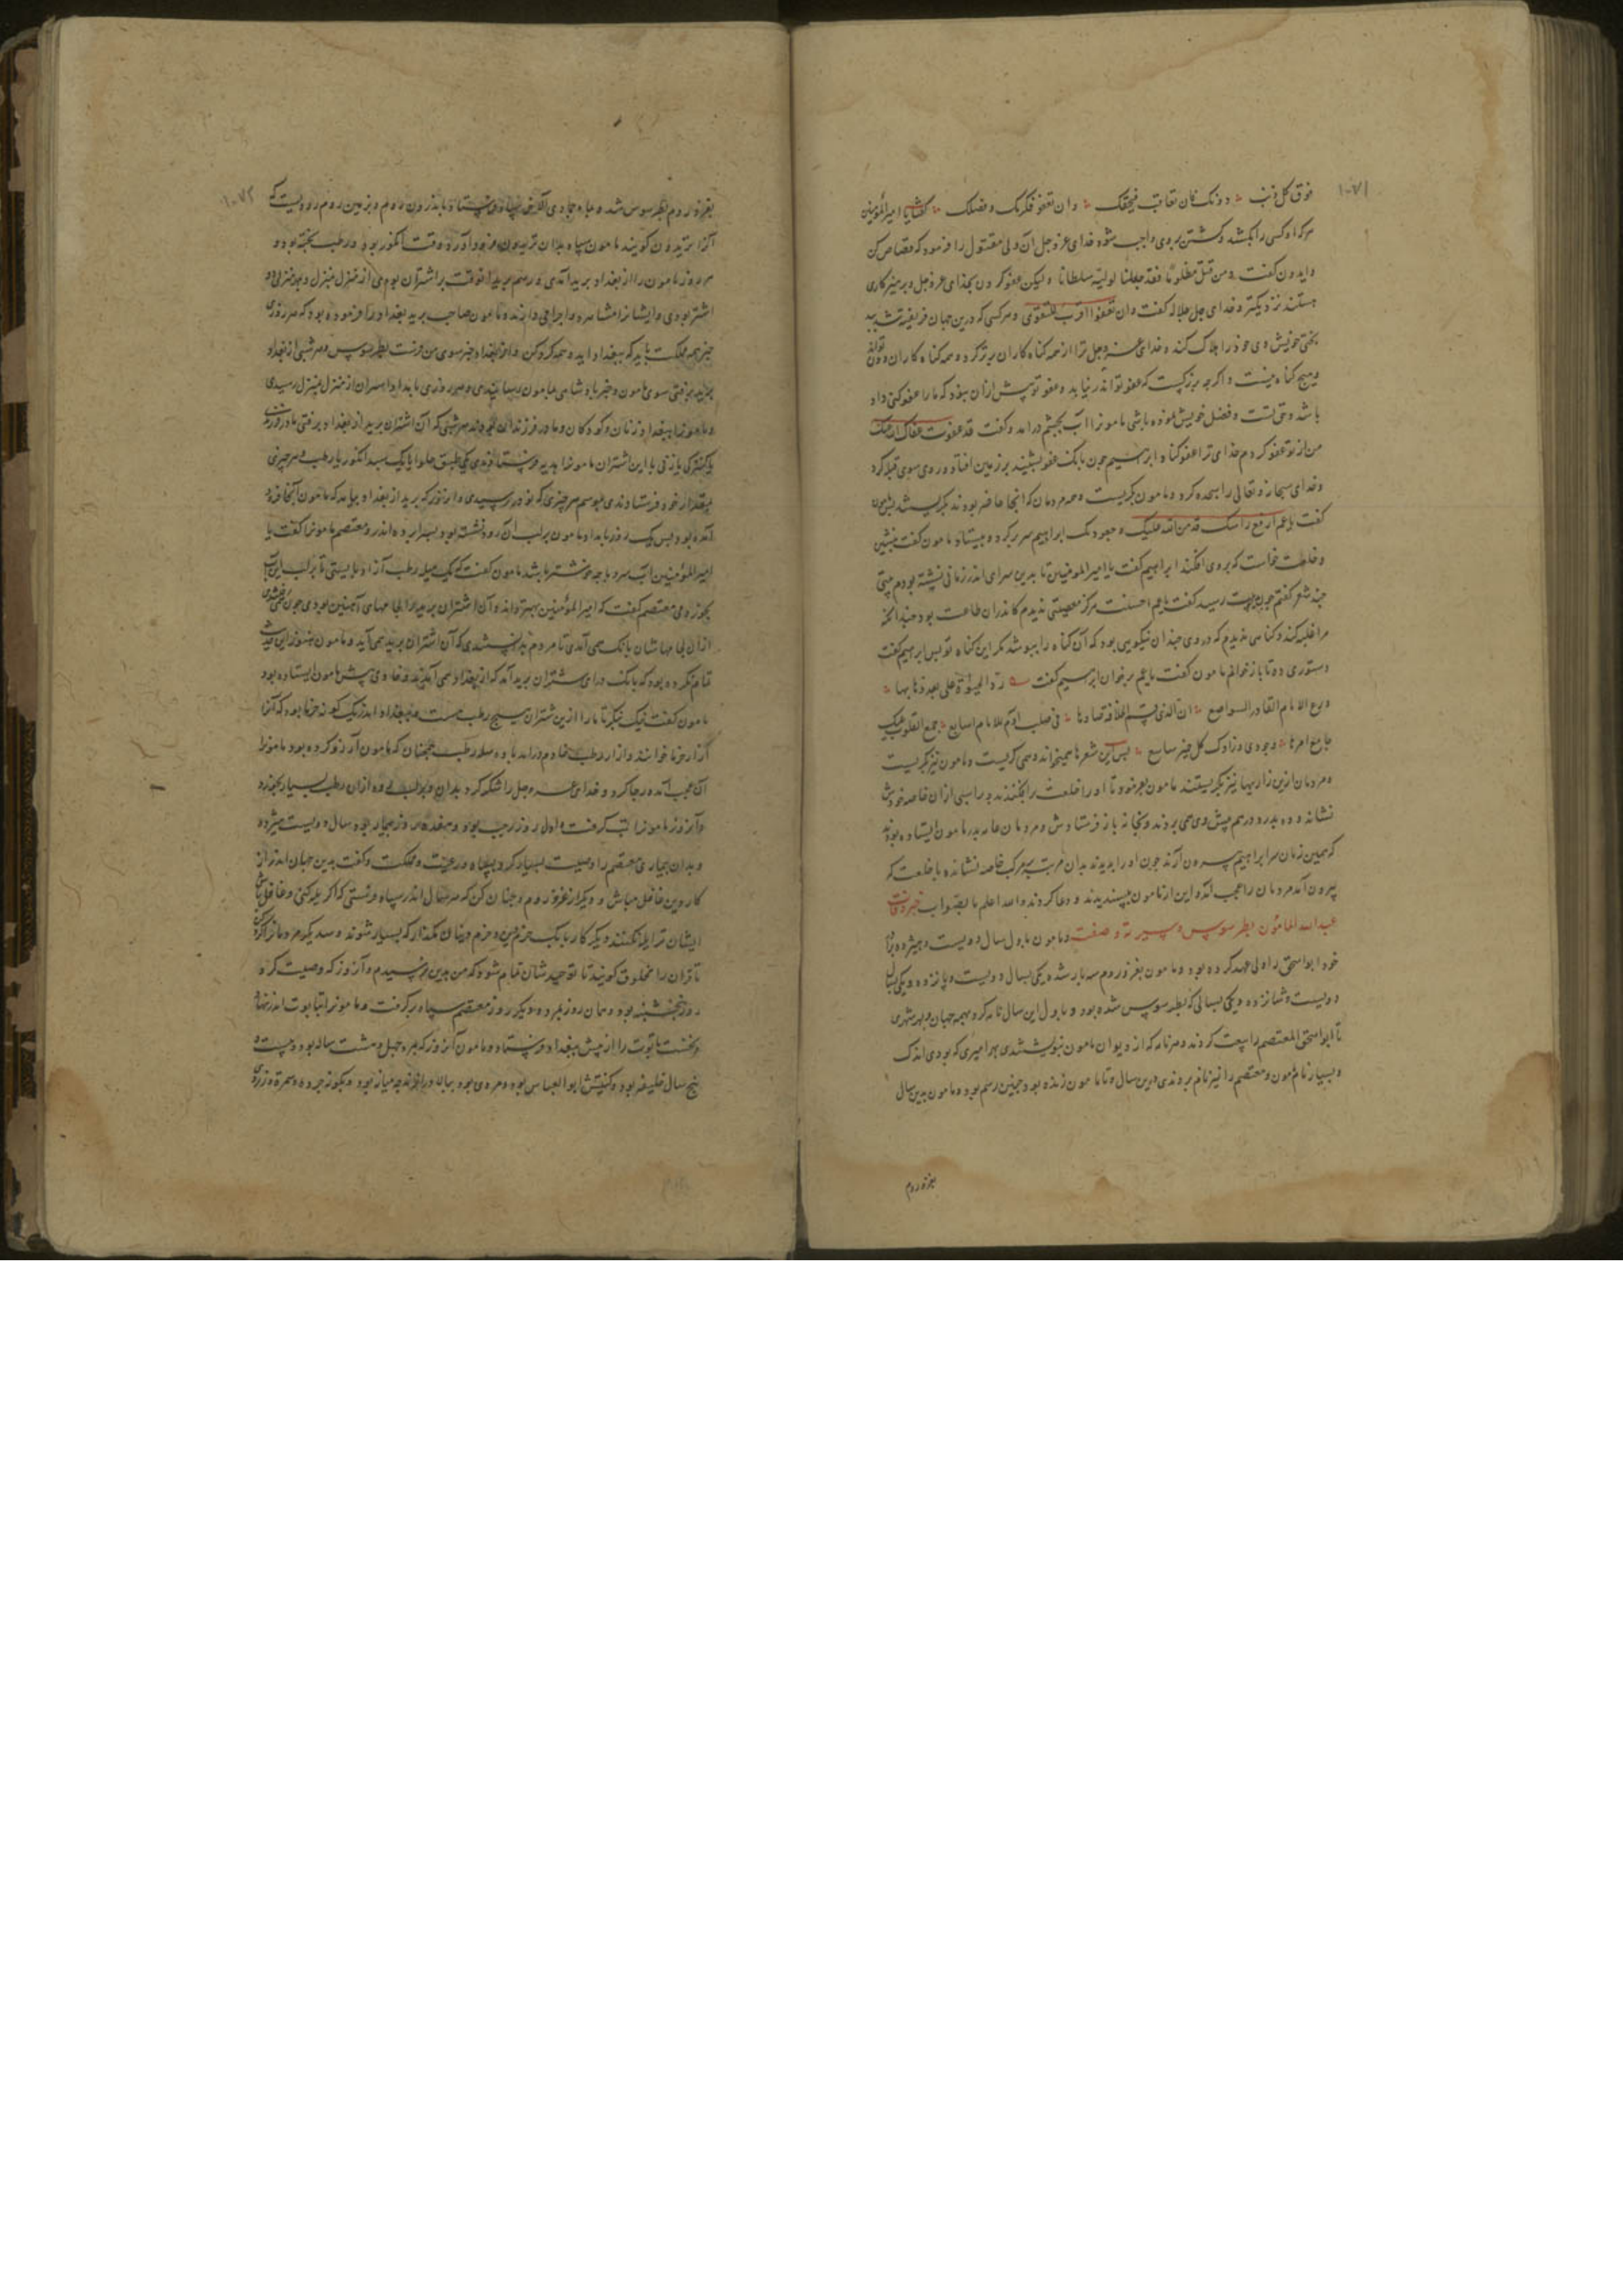 ۱۰۷۱
فوق کل ذنب دونک فان تعاقب فبحقک وان تعفو فکرمک وفضلک گفتا یا امیرالمؤمنین
هرکه کسی را بکشد و کشتن بر وی واجب شود خدای عزوجل آن ولی مقتول را فرمود که قصاص کن
وایدون گفت ومن قتل مظلوما فقد جعلنا لولیه سلطانا ولیکن عفو کردن بخدای عزوجل و پرهیزکاری
نزدیکتر و خدای جل جلاله گفت وان تعفوا اقرب للتقوی و هرکسی که درین جهان فریفته شد
بختی خویش وی خود را هلاک کند و خدای عزوجل ترا از همه گناه کاران برتر کرد و همه گناه کاران
و هیچ گناه نیست واگرچه بزرگست که عفو تو اندر نیابد و عفو تو بیش ازان بود که مارا عفو کنی داد
باشد وحق تست و فضل خویش نموده باشی مامونرا آب بچشم درآمد و گفت قد عفوت
من از تو عفو کردم خدای ترا عفو کناد ابرهیم چون بانگ عفو بشنید بر زمین افتاد و روی سوی قبله کرد
وخدای سبحانه وتعالی را سجده کرد و مامون بگریست و همه مردمان که آنجا حاضر بودند بگریستند پس مامون
گفت یا عم ارفع راسک قد من الله علیک ابراهیم سر برکرد و بیستاد مامون گفت بنشین
و خلعت خواست که بر وی افکند ابراهیم گفت یا امیرالمومنین تا بدین سرای اندر زمانی نشسته بودم بیتی
چند شعر گفتم گفت یا عم احسنت هرگز معصیتی ندیدم کاندران طاعت بود
گناهی ندیدم که در وی چندان نیکویی بود که آن گناه را بپوشد مگر این گناه تو پس ابرهیم گفت
دستوری ده تا بازخوانم مامون گفت یا عم برخوان ابرهیم گفت رد الحیوة علی بعد ذهابها
ورع الامام القادر المتواضع ان الذی قسم الخلافة فی صلب آدم للامام السابع جمع القلوب علیک
جامع امرها وحوی کل خیر جامع پس این شعرها همیخواند و همی گریست و مامون نیز بگریست
و مردمان ازین زاریها نیز بگریستند مامون بفرمود تا او را خلعت برافکندند و بر اسبی ازان خاصه خویش
نشاند و ده بدره درهم پیش وی همی بردند و بخانه باز فرستادش و مردمان بدر مامون ایستاده بودند
که همین زمان سر ابراهیم بیرون آرند چون او را بدیدند بدان مرتبت بمرکب خاصه نشانده با خلعت که
بیرون آمد مردمان را عجب آمد و این از مامون بپسندیدند و دعا کردند والله اعلم بالصواب خبر وفات
عبدالله المامون بطرسوس وسیرته وصفته و مامون باول سال دویست وهیژده
خود ابواسحق را ولی عهد کرده بود و مامون بغزو روم سه بار شده یکی بسال دویست و پانزده و یکی بسال
دویست و شانزده و یکی بسالی که بطرسوس شده بود و باول این سال نامه کرد بهمه جهان و بهر شهری
تا ابواسحق المعتصم را بیعت کردند و هر نامه که از دیوان مامون نبوشتندی بهر امیری که بودی اندک
و بسیار نام مامون و معتصم را نیز نام بردندی درین سال و تا مامون زنده بود چنین رسم بود و مامون بدین سال
بغزو روم
۱۰۷۲
بغزو روم بطرسوس شد و ماه جمادی الآخر اندرون روم و بزمین روم رودیست که
آنرا بدیدون گویند مامون سپاه بدان فرود آورد و وقت انگور بود و رطب پخته بود و
هر روز مامون را از بغداد برید آمدی و رسم برید آنوقت بر اشتران بود همی از منزل بمنزل
اشتر بودی و ایشانرا مشاهره و اجرا همی دادند و مامون صاحب برید بغداد را فرموده بود که هر روزی
خبر همه مملکت باید که ببغداد آید و همه گرد کن و از بغداد خبر سوی من فرست بطرسوس و هر شبی از بغداد
برید برفتی سوی مامون و خبر پادشاهی مامون رسانیدی و هر روزی بامداد از منزل بمنزل رسیدی
و مامونرا ببغداد زنان و کودکان و مادر فرزندان بودند هر شبی که آن اشتران برید از بغداد برفتی
یا کنیزکی یا زنی با این اشتران مامونرا هدیه فرستادندی یکی طبق حلوا یا یک سبد انگور یا رطب و هر چیزی
بمقدار خود فرستادندی بموسم هر چیزی که نو در رسیدی و آن روز که برید از بغداد بیامد که مامون آنجا فرود
آمده بود پس یک روز بامداد مامون بر لب آن رود نشسته بود و معتصم مامونرا گفت یا
امیرالمؤمنین آب سرد با چه خوشتر باشد مامون گفت که یک سله رطب آزاد بایستی تا بر لب این آب
بخوردمی معتصم گفت که امیرالمؤمنین بهتر داند و آن اشتران برید را لجامهای آهنین بودی
ازان لجامهاشان بانگ همی آمدی تا مردم بدانستندی که آن اشتران برید همی آید و مامون هنوز این حدیث
تمام نکرده بود که بانگ درای اشتران برید آمد که از بغداد همی آمدند و خادمی پیش مامون ایستاده بود
مامون گفت نیک بنگر تا ما را ازین اشتران هیچ رطب هست و ببغداد اندر یک گونه خرما بود که آنرا
آزاد خرما خوانند و ازاد رطب خادم درآمد با دو سله رطب همچنان که مامون آرزو کرده بود مامونرا
آن عجب آمد و خدای عزوجل را شکر کرد بدان و بر لب رود ازان رطب بسیار بخورد
و آنروز مامونرا تب گرفت و اول روز رجب بود و هفده روز بیمار بود سال دویست و هیژده
و بدان بیماری معتصم را وصیت بسیار کرد بسپاه و رعیت و مملکت و گفت بدین جهان اندر از
کار دین غافل مباش و دیگر از غزو روم و چنان کن که هر سال اندر سپاه فرستی که اگر یله کنی و غافل باشی
ایشان ترا یله نکنند و دیگر کار بابک خرم دین و خرم دینان مگذار که بسیار شوند و سدیگر مردمانرا
تا قران را مخلوق گویند تا توحیدشان تمام شود که من بدین نرسیدم و آنروز که وصیت کرد
روز پنجشنبه بود و همان روز بمرد و دیگر روز معتصم سپاه برگرفت و مامونرا بتابوت اندر نهاد
و نخست تابوت را از پیش ببغداد فرستاد و مامون آنروز که بمرد چهل و هشت ساله بود و بیست و
پنج سال خلیفه بود و کنیتش ابوالعباس بود و مردی بود ببالا میانه بود و بگونه چرده